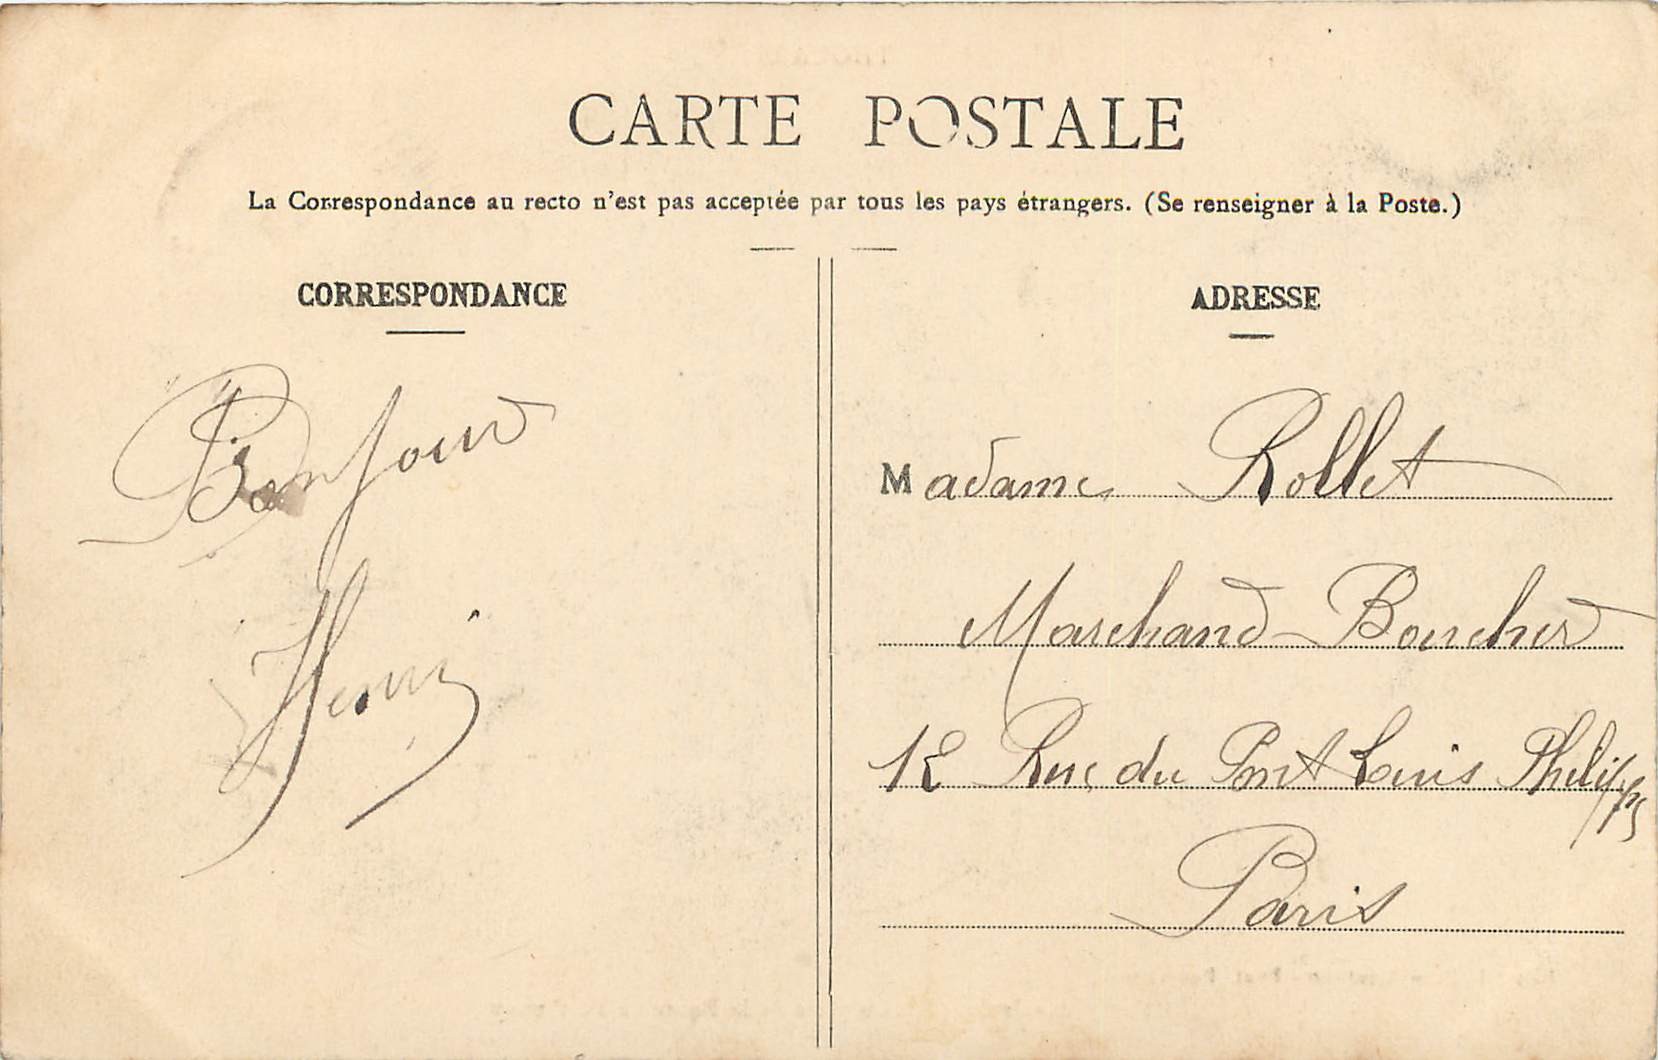 CARTE POSTALE
La Correspondance au recto n'est pas acceptée par tous les pays étrangers. (Se renseigner à la Poste.)
CORRESPONDANCE
ADRESSE
Bonjour
Henri
Madame Rollet
Marchand Boucher
12 Rue du Pont Louis Philippe
Paris